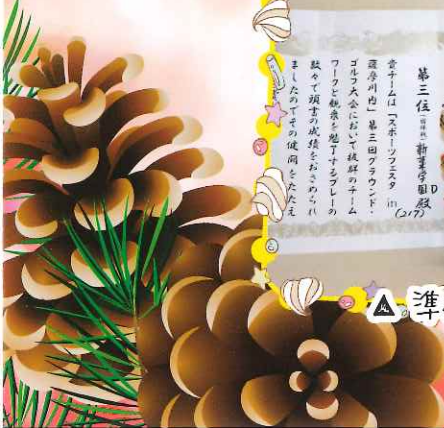 第三位(団体戦)新葉学園D殿
(217)
貴チームは「スポーツフェスタ in
薩摩川内」第三回グラウンド・
ゴルフ大会において抜群のチーム
ワークと観衆を魅了するプレーの
数々で頭書の成績をおさめられ
ましたのでその健闘をたたえ
準